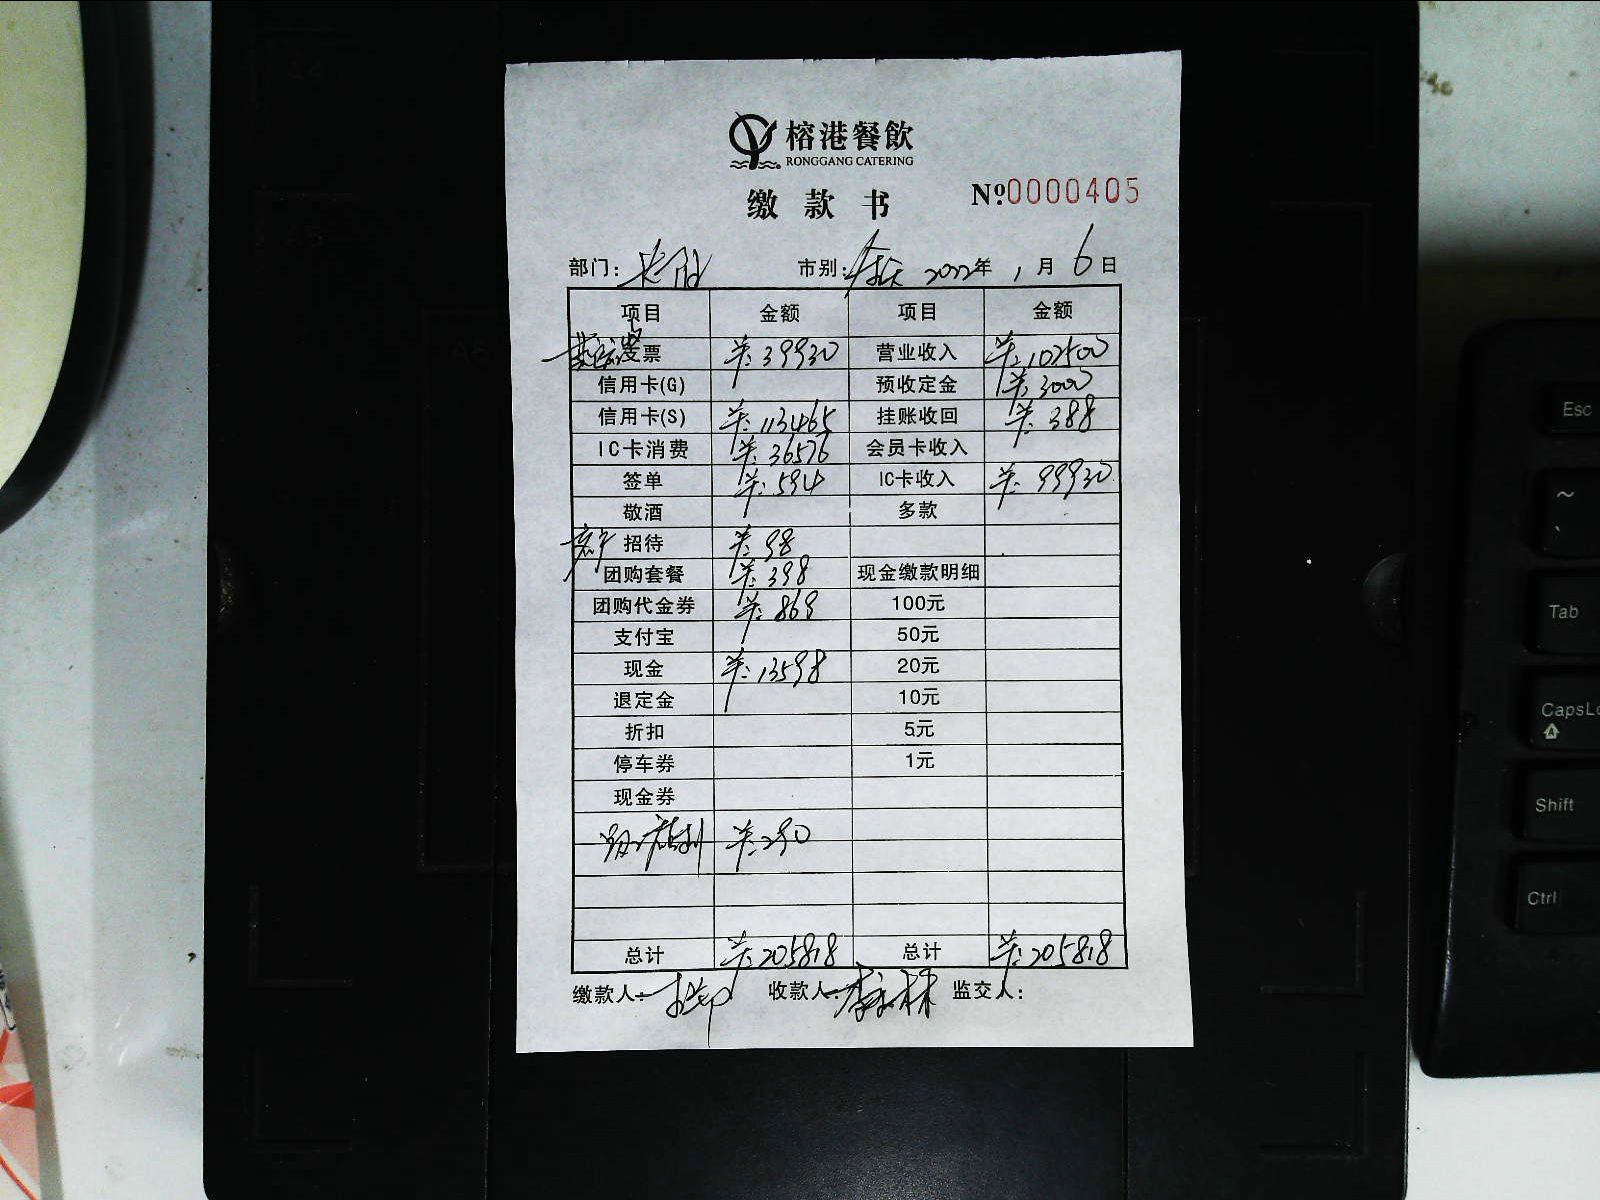 榕港餐飲
RONGGANG CATERING
缴款书 №0000405
部门: 市别: 2022年 1月 6日
项目 金额 项目 金额
发票 ¥:39930 营业收入 ¥:102500
信用卡(G) 预收定金 ¥:3000
信用卡(S) ¥:113465 挂账收回 ¥:388
IC卡消费 ¥:36576 会员卡收入
签单 ¥:594 IC卡收入 ¥:99930
敬酒 多款
招待 ¥:98
团购套餐 ¥:398 现金缴款明细
团购代金券 ¥:869 100元
支付宝 50元
现金 ¥:13598 20元
退定金 10元
折扣 5元
停车券 1元
现金券
¥:290
总计 ¥:205818 总计 ¥:205818
缴款人: 收款人: 监交人:
Esc
~
`
Tab
CapsLo
A
Shift
Ctrl